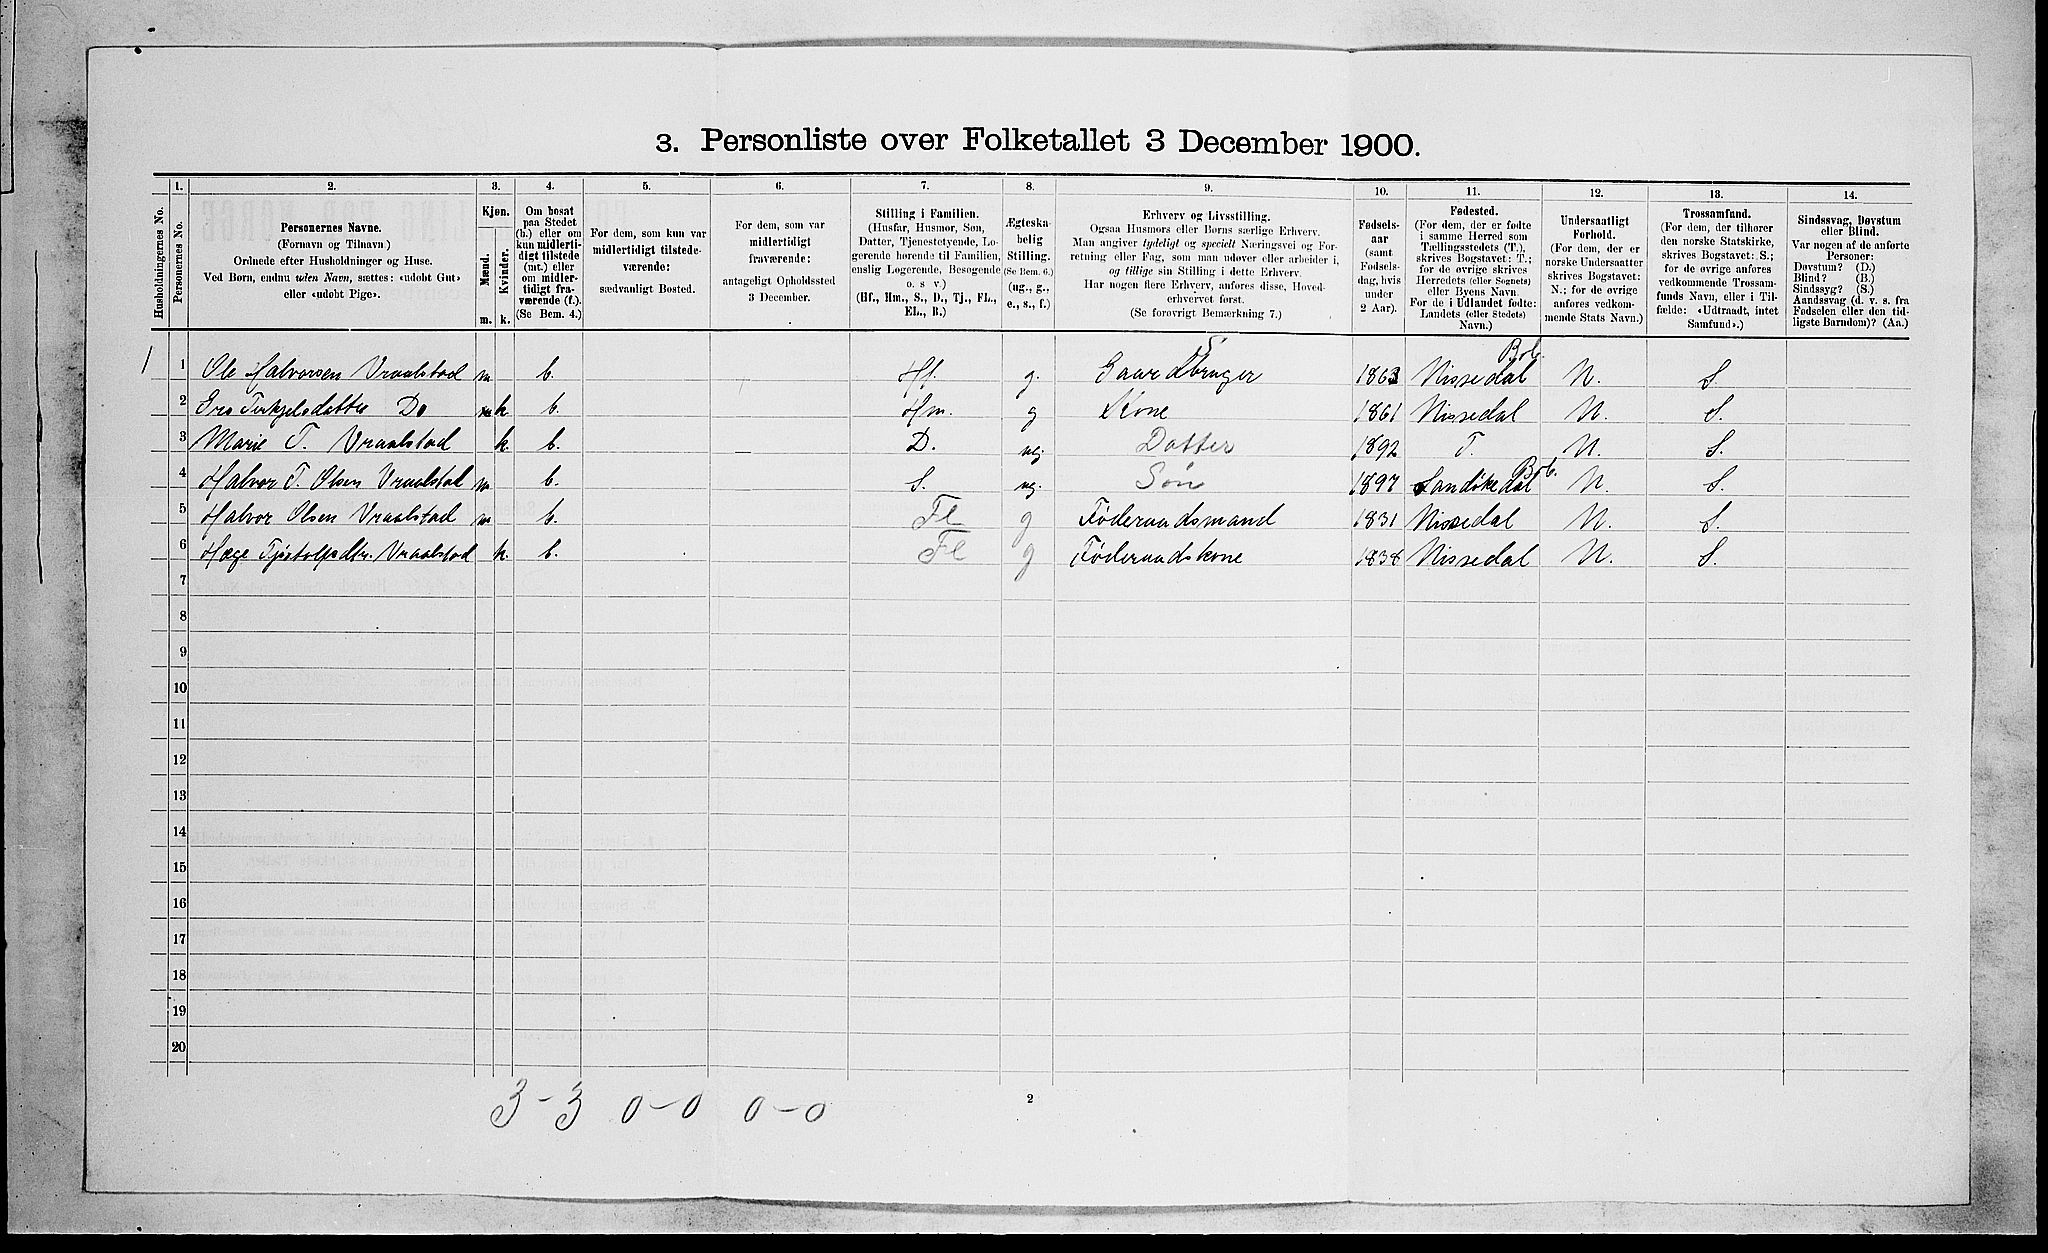 3. Personliste over Folketallet 3 December 1900.
1. 2. 3. 4. 5. 6. 7. 8. 9. 10. 11. 12. 13. 14.
Husholdningernes No.
Personernes No.
Personernes Navne.
(Fornavn og Tilnavn.)
Ordnede efter Husholdninger og Huse.
Ved Børn, endnu uden Navn, sættes: «udøbt Gut»
eller «udøbt Pige».
Kjøn.
Mænd.
Kvinder.
m. k.
Om bosat
paa Stedet
(b.) eller om
kun midlerti-
digt tilstede
(mt.) eller
om midler-
tidigt fra-
værende (f.).
(Se Bem. 4.)
For dem, som kun var
midlertidigt tilstede-
værende:
sædvanligt Bosted.
For dem, som var
midlertidigt
fraværende:
antageligt Opholdssted
3 December.
Stilling i Familien.
(Husfar, Husmor, Søn,
Datter, Tjenestetyende, Lo-
gerende hørende til Familien,
enslig Logerende, Besøgende
o. s. v.)
(Hf., Hm., S., D., Tj., FL.,
EL., B.)
Ægteska-
belig
Stilling.
(Se Bem. 6.)
(ug., g.,
e., s., f.)
Erhverv og Livsstilling.
Ogsaa Husmors eller Børns særlige Erhverv.
Man angiver tydeligt og specielt Næringsvei og For-
retning eller Fag, som man udøver eller arbeider i,
og tillige sin Stilling i dette Erhverv.
Har nogen flere Erhverv, anføres disse, Hoved-
erhvervet først.
(Se forøvrigt Bemærkning 7.)
Fødsels-
aar
(samt
Fødsels-
dag, hvis
under
2 Aar).
Fødested.
(For dem, der er fødte
i samme Herred som
Tællingsstedets (T.),
skrives Bogstavet: T.;
for de øvrige skrives
Herredets (eller Sognets)
eller Byens Navn.
For de i Udlandet fødte:
Landets (eller Stedets)
Navn.)
Undersaatligt
Forhold.
(For dem, der er
norske Undersaatter
skrives Bogstavet:
N.; for de øvrige
anføres vedkom-
mende Stats Navn.)
Trossamfund.
(For dem, der tilhører
den norske Statskirke,
skrives Bogstavet: S.;
for de øvrige anføres
vedkommende Trossam-
funds Navn, eller i Til-
fælde: «Udtraadt, intet
Samfund».)
Sindssvag, Døvstum
eller Blind.
Var nogen af de anførte
Personer:
Døvstum? (D.)
Blind? (B.)
Sindssyg? (S.)
Aandssvag (d. v. s. fra
Fødselen eller den tid-
ligste Barndom)? (Aa.)
1 1 Ole Halvorsen Vraalstad m b. Hf. g. Gaardbruger S 1863 Nissedal Brb. N. S.
2 Gro Terkjelsdatter Do m k b. Hm. g Kone 1861 Nissedal N. S.
3 Marie T. Vraalstad k. b. D. ug. Datter 1892 T. N. S.
4 Halvor T. Olsen Vraalstad m b. S. ug. Søn 1897 Sandøkedal Brb. N. S.
5 Halvor Olsen Vraalstad m b. Fl g Føderaadsmand 1831 Nissedal N. S.
6 Hæge Tjostolfsdtr. Vraalstad k. b. Fl g Føderaadskone 1838 Nissedal N. S.
7
8
9
10
11
12
13
14
15
16
17
18
19
20
3 - 3 0 - 0 0 - 0
2